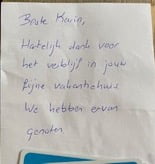 Beste Karin,
Hartelijk dank voor
het verblijf in jouw
fijne vakantiehuis
We hebben ervan
genoten